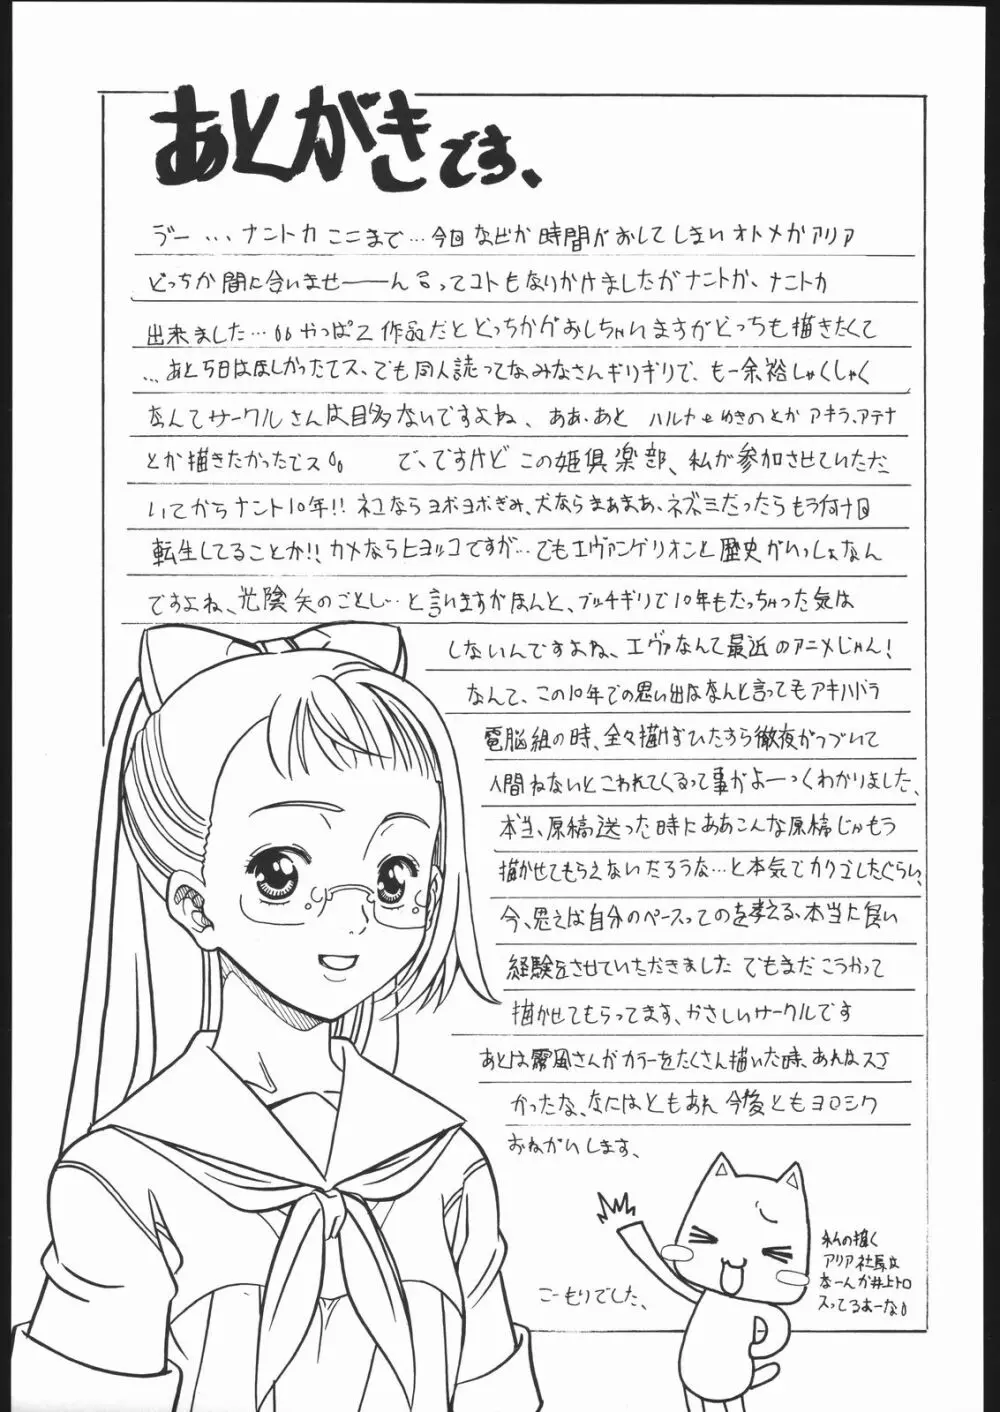 あとがきです、
うー...ナントカここまで...今回なぜか時間がおしてしまいオトメかアリア
どっちか間に合いませーーんるってコトもなりかけましたがナントか、ナニトカ
出来ました....。。やっぱ2作品だとどっちかがおしちゃいますがどっちも描きたくて
...あと5日はほしかったてス、でも同人誌ってなみなさんギリギリで、もー余裕しゃくしゃく
なんてサークルさんは目多ないですよね、ああ、あと ハルナやゆきのとかアキラ、アテナ
とか描きたかったでス。。 で、ですけどこの姫倶楽部、私が参加させていただ
いてからナント10年!!ネコならヨボヨボぎみ、犬ならまぁまぁ、ネズミだったらもう何回
転生してることか!!カメならヒヨッコですが...でもエヴァンゲリオンと歴史がいっしょなん
ですよね、光陰矢のごとし...と言いますがほんと、ブッチギリで10年もたっちゃった気は
しないんですよね、エヴァなんて最近のアニメじゃん!
なんて、この10年での思い出はなんと言ってもアキハバラ
電脳組の時、全々描けずひたすら徹夜がつづいて
人間ねないとこわれてくるって事がよーーくわかりました、
本当、原稿送った時にああこんな原稿じゃもう
描かせてもらえないだろうな...と本気でカクゴしたぐらい、
今、思えば自分のペースってのを考える、本当に良い
経験をさせていただきました でもまだこうやって
描かせてもらってます、やさしいサークルです
あとは霧風さんがカラーをたくさん描いた時、あれはスゴ
かったな、なにはともあれ今後ともヨロシク
おねがいします、
こーもりでした、
みんの描く
アリア社長は
なーんか井上トロ
スってるよーな。